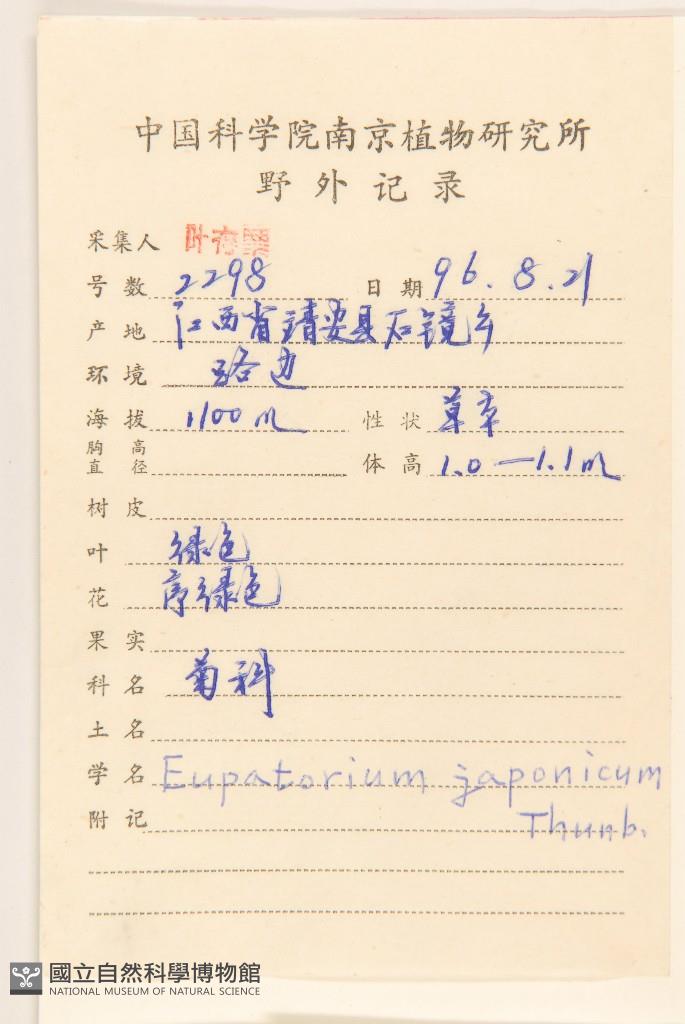 中国科学院南京植物研究所
野外记录
采集人 叶存粟
号数 2298 日期 96.8.21
产地 江西省靖安县石镜乡
环境 路边
海拔 1100m 性状 草本
胸高直径 体高 1.0—1.1m
树皮
叶 绿色
花 序绿色
果实
科名 菊科
土名
学名 Eupatorium japonicum
附记 Thunb.
國立自然科學博物館
NATIONAL MUSEUM OF NATURAL SCIENCE